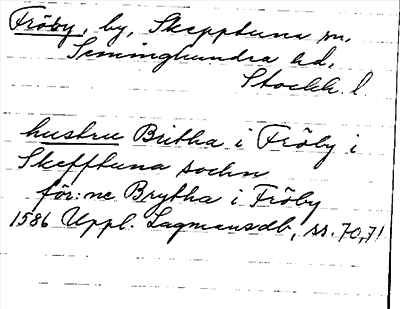 Fröby, by, Skepptuna sn,
Seminghundra hd,
Stockh. l
hustru Britha i Fröby i
Skefftuna sochn
för:ne Brytha i Fröby
1586 Uppl. Lagmansdb, ss. 70, 71